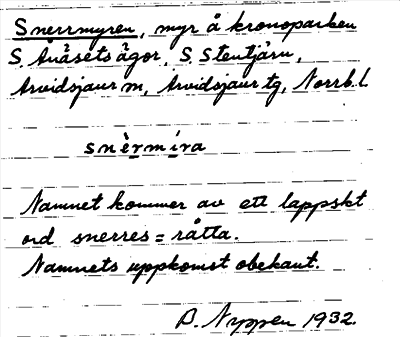 Snerrmyren, myr å kronoparken
S. Auåsets ägor, S. Stentjärn,
Arvidsjaur m, Arvidsjaur tg, Norrb. l.
snèrmíra
Namnet kommer av ett lappskt
ord snerres = råtta.
Namnets uppkomst obekant.
B. Nyppen 1932.